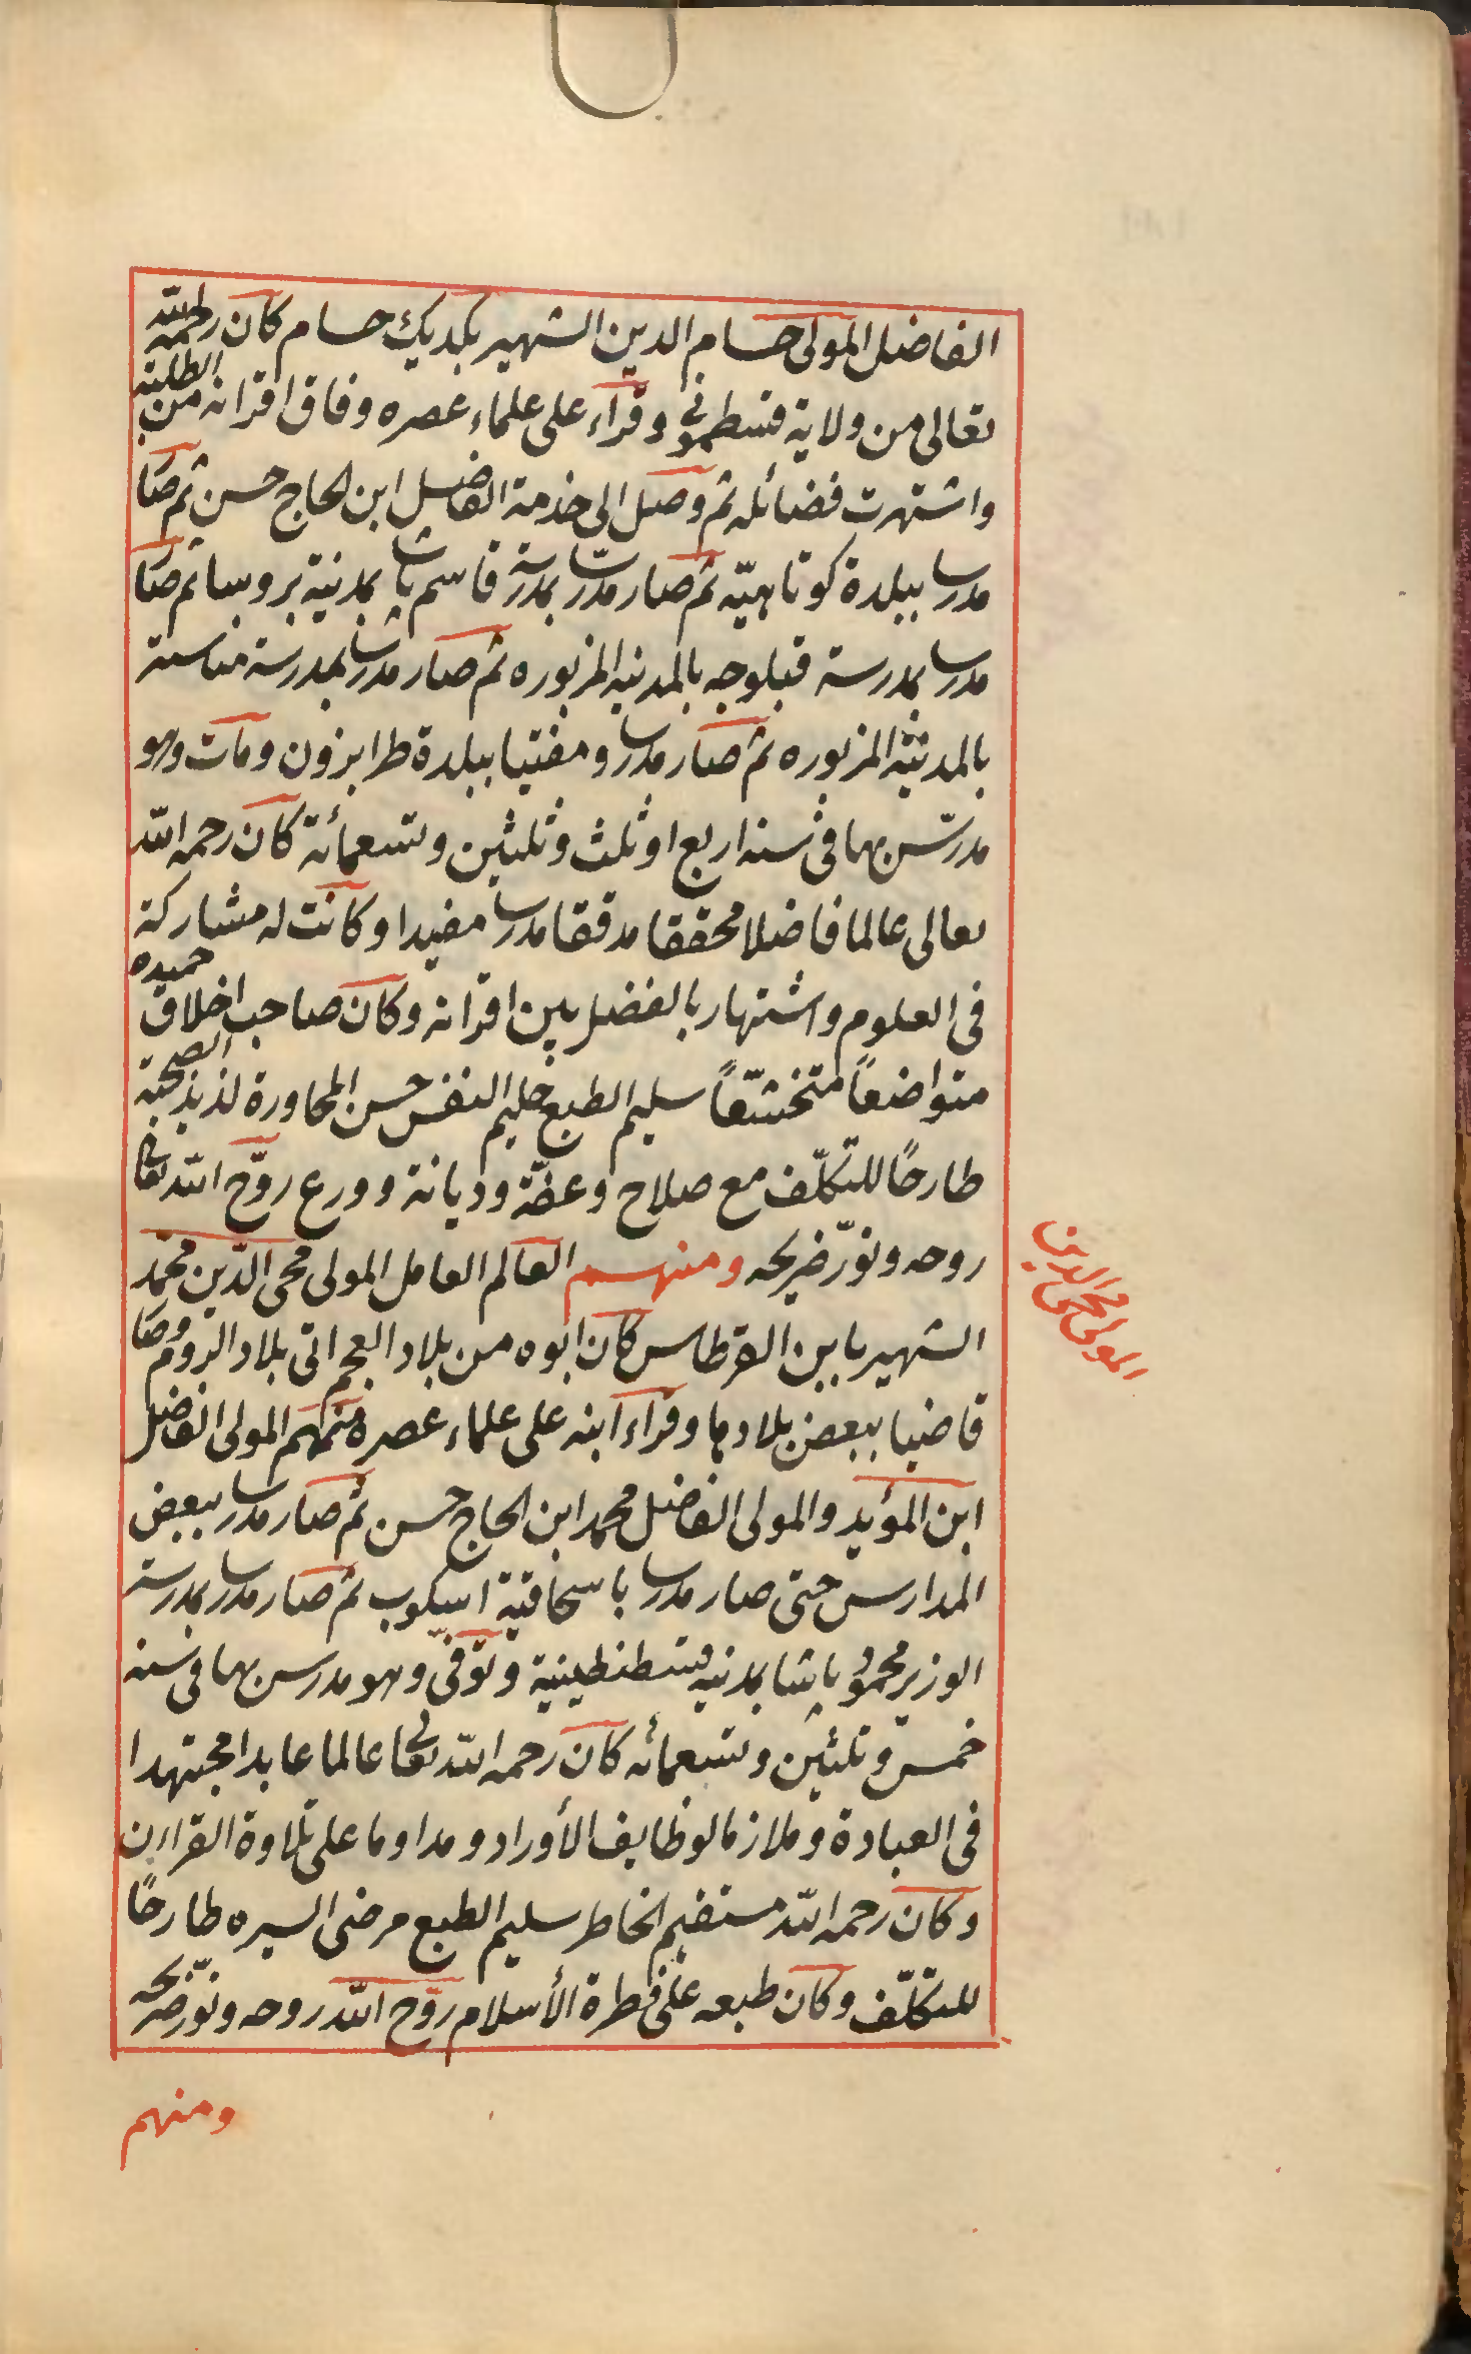 الفاضل المولى حسام الدين الشهير بكديك حسام كان رحمه الله
تعالى من ولاية قسطموني وقرأء على علماء عصره وفاق اقرانه من الطلبة
واشتهرت فضائله ثم وصل الى خدمة الفاضل ابن الحاج حسن ثم صار
مدرسا ببلدة كوتاهيّه ثم صار مدرسا بمدرسة قاسم پاشا بمدينة بروسا ثم صار
مدرسا بمدرسة قبلوجه بالمدينه المزبوره ثم صار مدرسا بمدرسة مناستر
بالمدينة المزبوره ثم صار مدرسا ومفتيا ببلدة طرابزون ومات وهو
مدرّس بها في سنه اربع او ثلث وثلثين وتسعمائة كان رحمه الله
تعالى عالما فاضلا محققا مدققا مدرسا مفيدا وكانت له مشاركة
في العلوم واشتهار بالفضل بين اقرانه وكان صاحب اخلاق حميده
متواضعاً متخشّعاً سليم الطبع حليم النفس حسن المحاورة لذيذ الصحبة
طارحًا للتكلّف مع صلاح وعفّة وديانة وورع روّح الله تعالى
روحه ونوّر ضريحه ومنهم العالم العامل المولى محي الدّين محمّد
الشهير بابن القرطاس كان ابوه من بلاد العجم اتى بلاد الروم وصار
قاضيا ببعض بلادها وقرأء ابنه على علماء عصره منهم المولى الفاضل
ابن المؤيد والمولى الفاضل محمد ابن الحاج حسن ثم صار مدرسا ببعض
المدارس حتى صار مدرسا باسحاقية اسكوب ثم صار مدرسا بمدرسة
الوزير محمود پاشا بمدينه قسطنطينية وتوفّى وهو مدرس بها في سنه
خمس وثلثين وتسعمائه كان رحمه الله تعالى عالما عابدا مجتهدا
في العبادة وملازما لوظايف الأوراد ومداوما على تلاوة القراءن
وكان رحمه الله مستقيم الخاطر سليم الطبع مرضى السيره طارحًا
للتكلّف وكان طبعه على فطرة الأسلام روّح الله روحه ونوّر ضريحه
ومنهم
المولى محي الدين